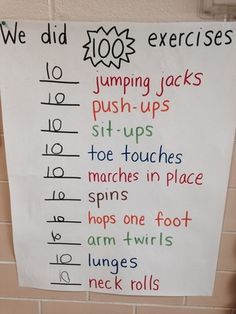 We did 100 exercises
10 jumping jacks
10 push-ups
10 sit-ups
10 toe touches
10 marches in place
10 spins
10 hops one foot
10 arm twirls
10 lunges
10 neck rolls